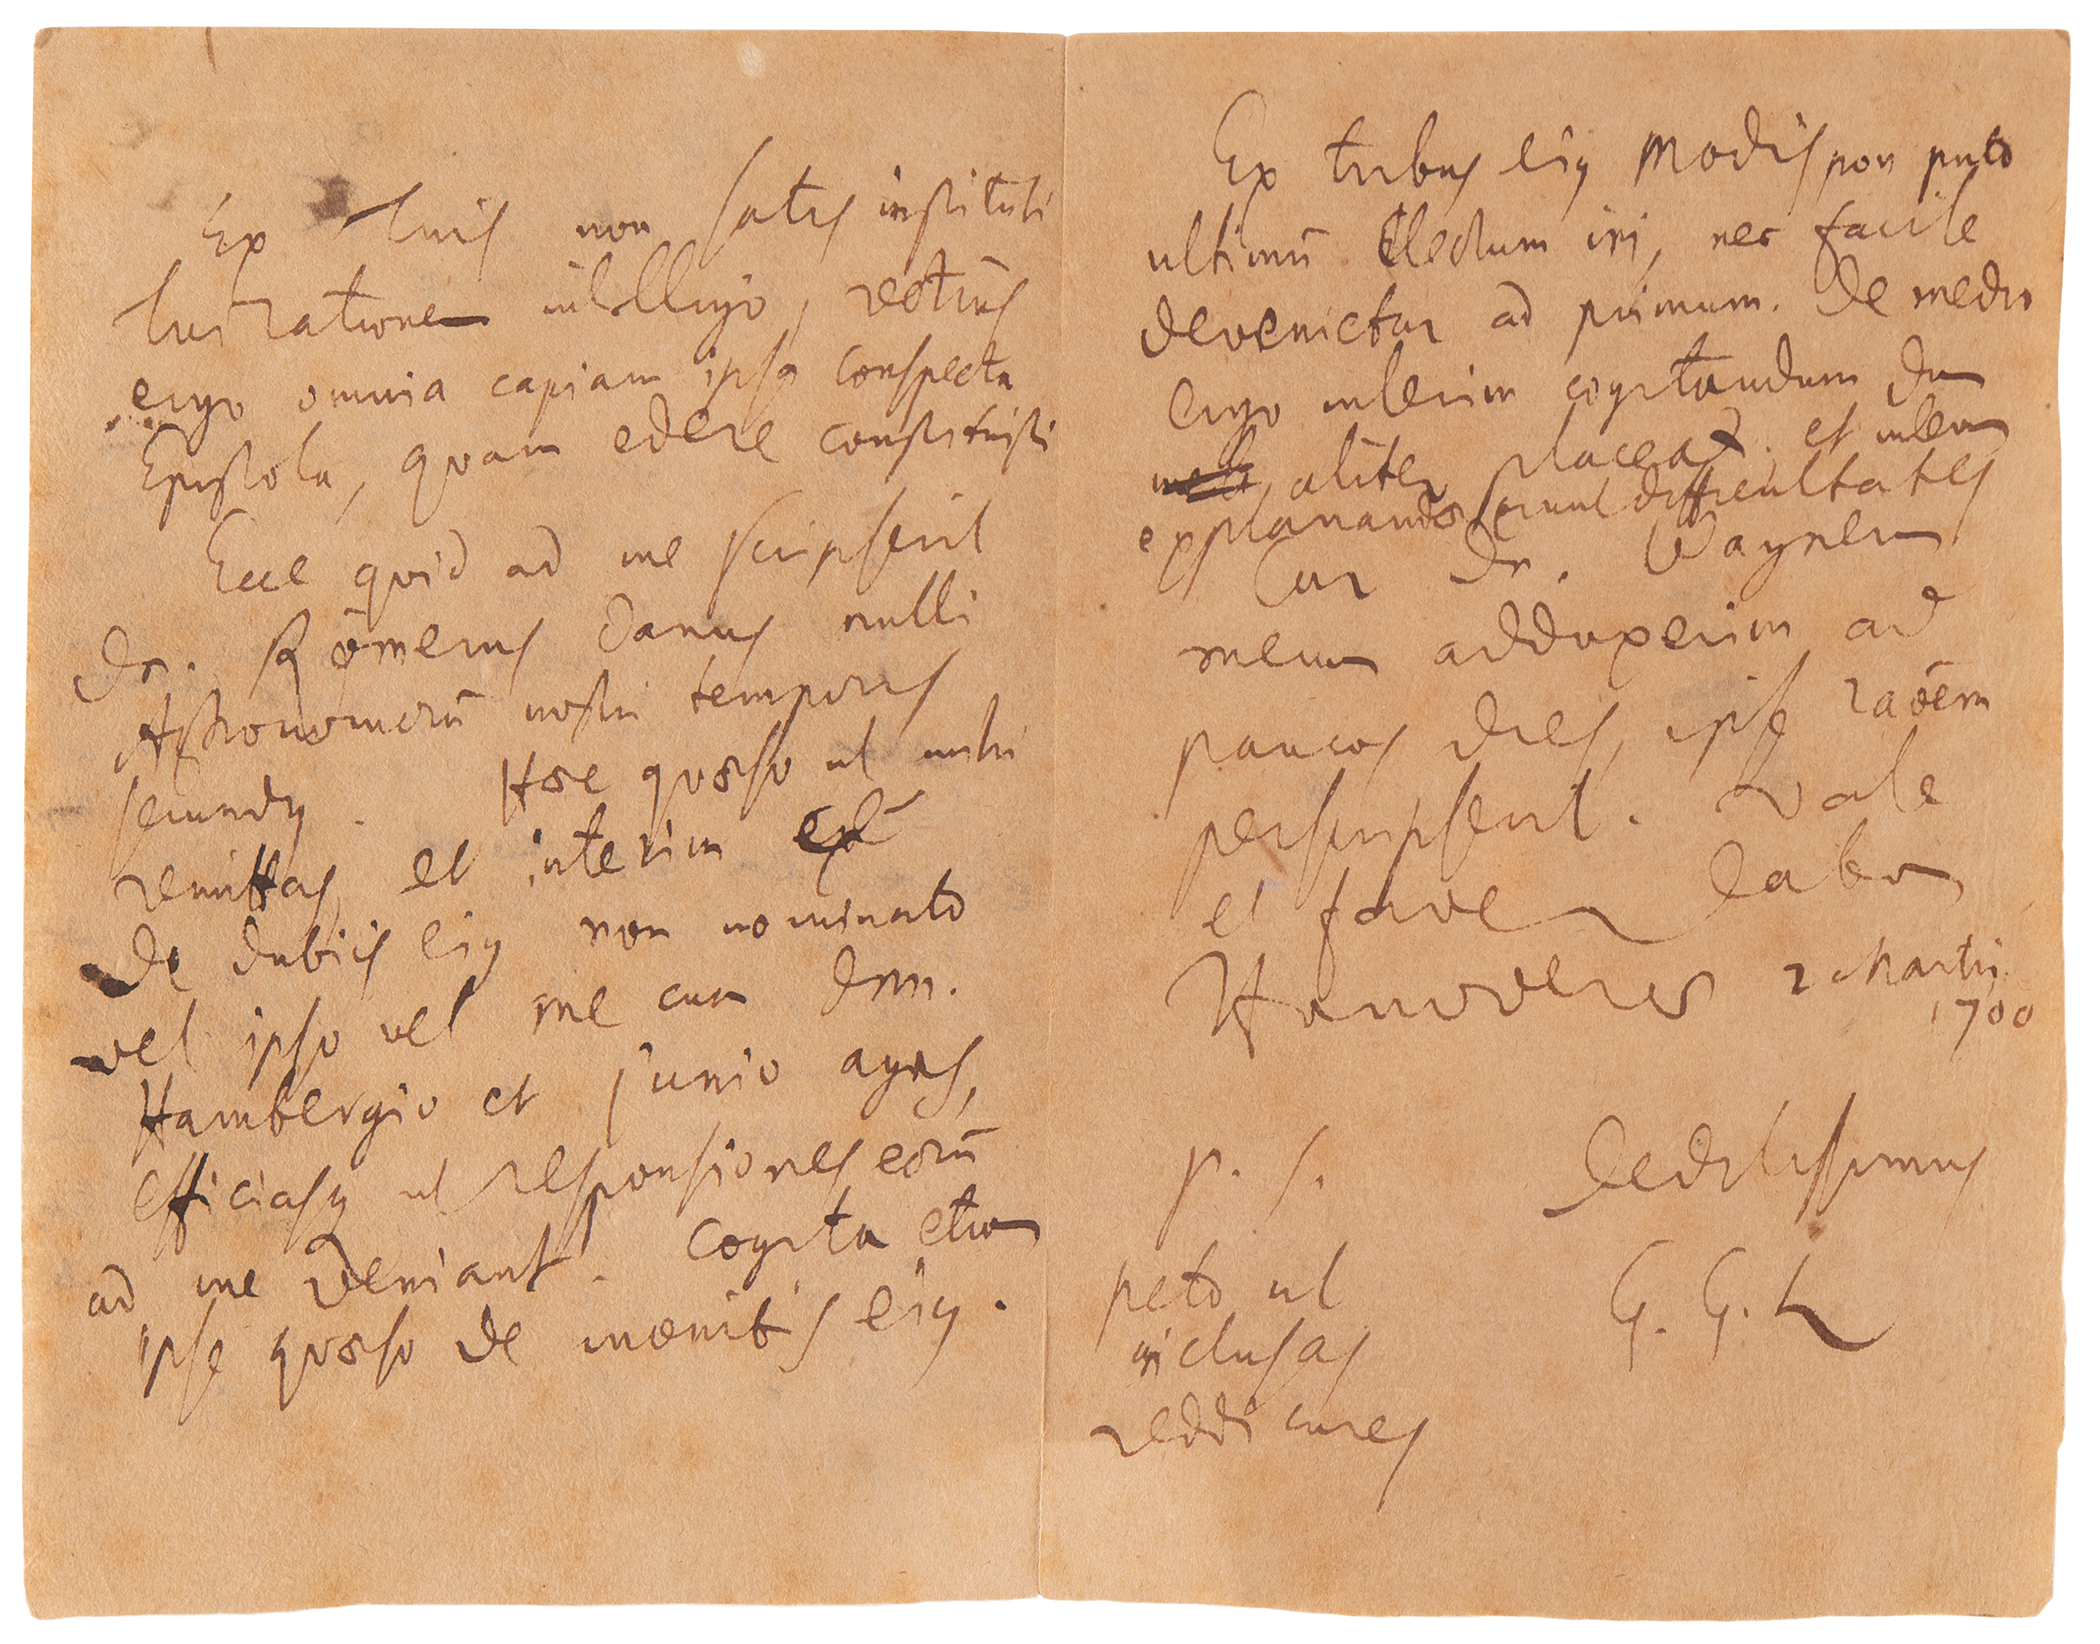 Ex tuis non satis instituti
tui rationem intelligo, rectius
ergo omnia capiam ipsa conspecta
Epistola, quam edere constituisti
Ecce quid ad me scripserit
Dn. Römerus Danus nulli
Astronomorū nostri temporis
secundꝰ. Hæc quæso ut mihi
remittas, et interim
de dubiis eiꝰ non nominato
vel ipso vel me cum Dnn.
Hambergio et Junio agas,
efficiasq ut responsiones eorū
ad me veniant. Cogita etiam
ipse quæso de monitis eiꝰ.
Ex tribus eiꝰ modis non puto
ultimū electum iri, nec facile
devenietur ad primum. De medio
ergo interim cogitandum dum
aliter placeat. et interim
explanandæ erunt difficultates
Cur Dn. Wagnerum
meum adduxerim ad
paucos dies, ipse raōem
perscripserit. Vale
et fave. Dabam
Hanoveræ 2 Martii
1700
P. S. deditissimus
peto ut G. G. L
inclusas
reddi cures